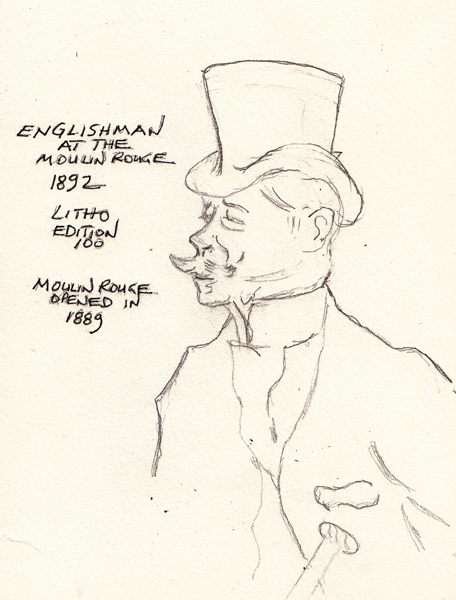 ENGLISHMAN
AT THE
MOULIN ROUGE
1892
LITHO
EDITION
100
MOULIN ROUGE
OPENED IN
1889